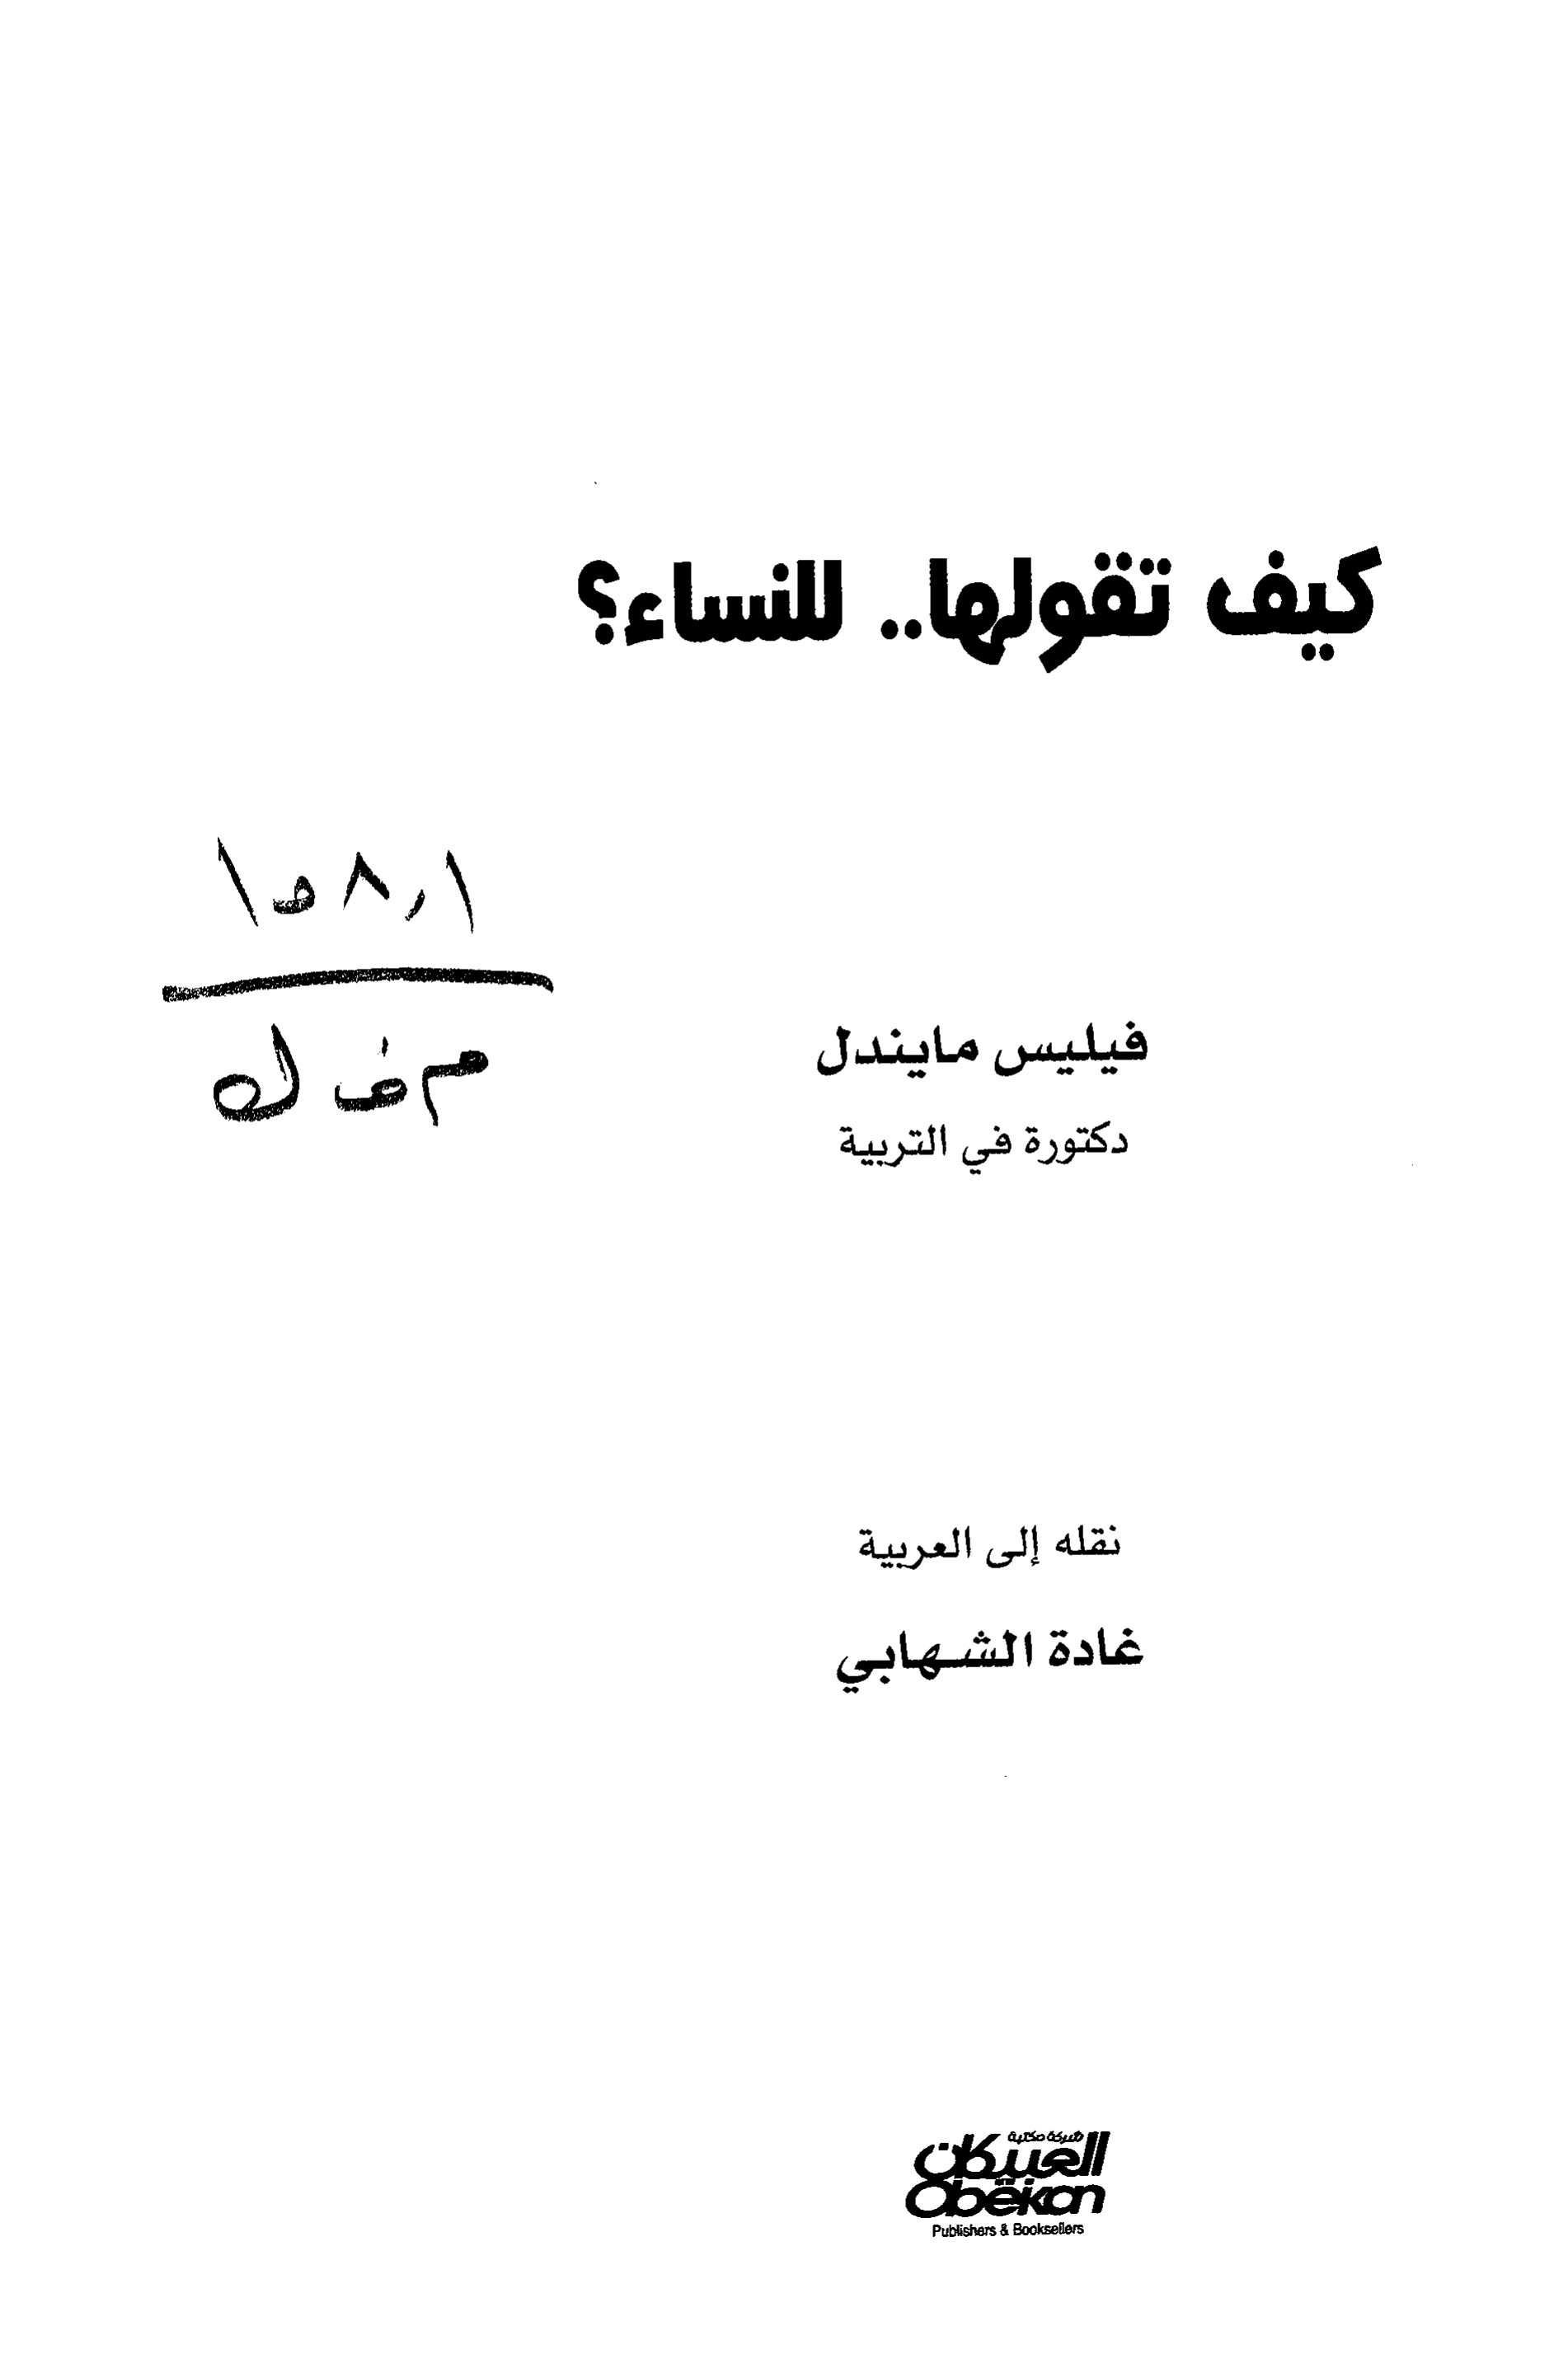 كيف تقولها.. للنساء؟
١٥٨,١
م ف ل
فيليس مايندل
دكتورة في التربية
نقله إلى العربية
غادة الشهابي
شركة مكتبة
العبيكان
Obëkan
Publishers & Booksellers